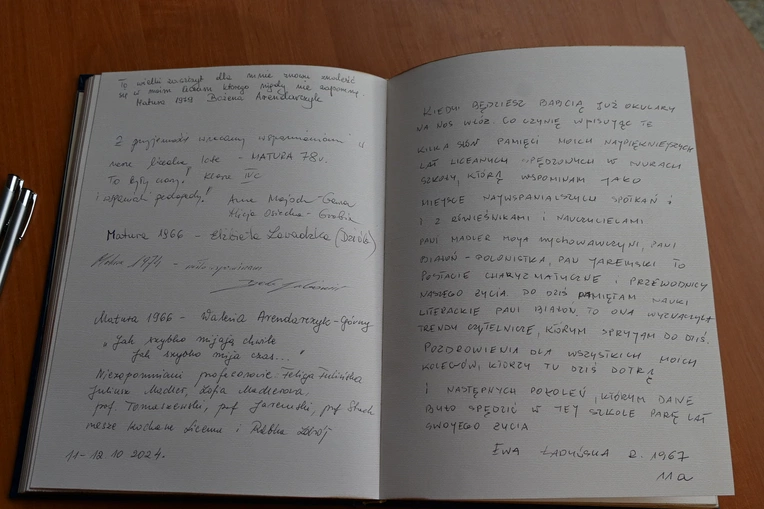 To wielki zaszczyt dla mnie znowu znaleźć
się w moim liceum którego nigdy nie zapomnę.
Matura 1979 Bożena Arendarczyk
Z przyjemnością wracamy wspomnieniami w
nasze licealne lata - MATURA 78r.
To były czasy! Klasa IVc
i wspaniali pedagodzy! Anna Majoch-
Alicja
Matura 1966 - Elżbieta Zawadzka (Dziób)
Matura 1974 -
Matura 1966 - Waleria Arendarczyk-Górny
"Jak szybko mijają chwile
Jak szybko mija czas..."
Niezapomniani profesorowie: Feliga Fulińska
Juliusz Madler, Zofia Madlerowa.
prof. Tomaszewski, prof. Jaremski, prof.
nasze kochane Liceum i Rabka Zdrój
11-12.10 2024.
KIEDYŚ BĘDZIESZ BABCIĄ JUŻ OKULARY
NA NOS WŁÓŻ. CO CZYNIĘ WPISUJĄC TE
KILKA SŁÓW PAMIĘCI MOICH NAJPIĘKNIEJSZYCH
LAT LICEALNYCH SPĘDZONYCH W MURACH
SZKOŁY, KTÓRĄ WSPOMINAM JAKO
MIEJSCE NAJWSPANIALSZYCH SPOTKAŃ I
I Z RÓWIEŚNIKAMI I NAUCZYCIELAMI
PANI MADLER MOJA WYCHOWAWCZYNI, PANI
BIAŁOŃ - POLONISTKA, PAN JAREMSKI TO
POSTACIE CHARYZMATYCZNE I PRZEWODNICY
NASZEGO ŻYCIA. DO DZIŚ PAMIĘTAM NAUKI
LITERACKIE PANI BIAŁOŃ. TO ONA WYZNACZYŁA
TRENDY CZYTELNICZE, KTÓRYM SPRZYJAM DO DZIŚ.
POZDROWIENIA DLA WSZYSTKICH MOICH
KOLEGÓW, KTÓRZY TU DZIŚ DOTRĄ
I NASTĘPNYCH POKOLEŃ, KTÓRYM DANE
BYŁO SPĘDZIĆ W TEJ SZKOLE PARĘ LAT
SWOJEGO ŻYCIA
EWA ŁADYŃSKA R. 1967
11a